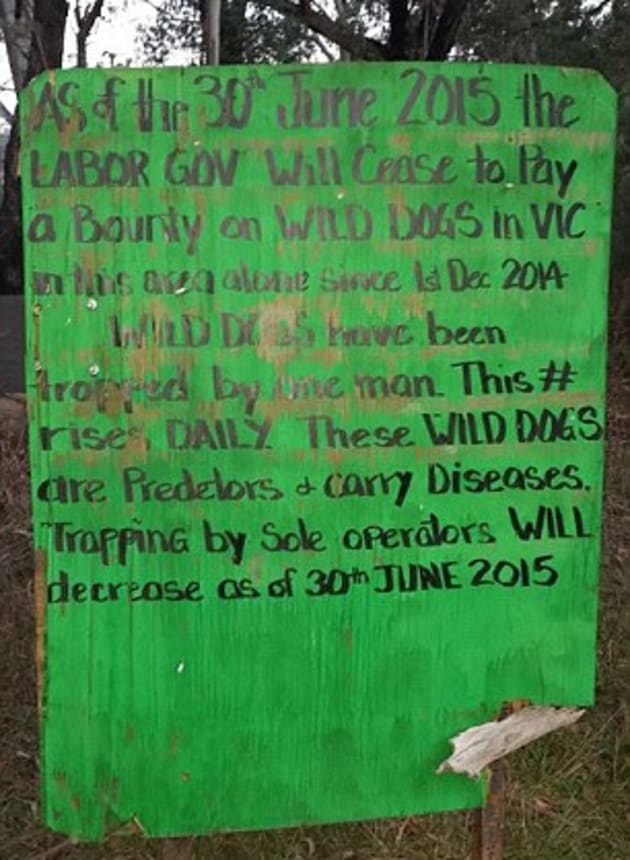 As of the 30th June 2015 the
LABOR GOV Will Cease to Pay
a Bounty on WILD DOGS in VIC
in this area alone since 1st Dec 2014
WILD DOGS have been
trapped by one man. This #
rises DAILY. These WILD DOGS
are Predetors & carry Diseases.
Trapping by Sole operators WILL
decrease as of 30th JUNE 2015